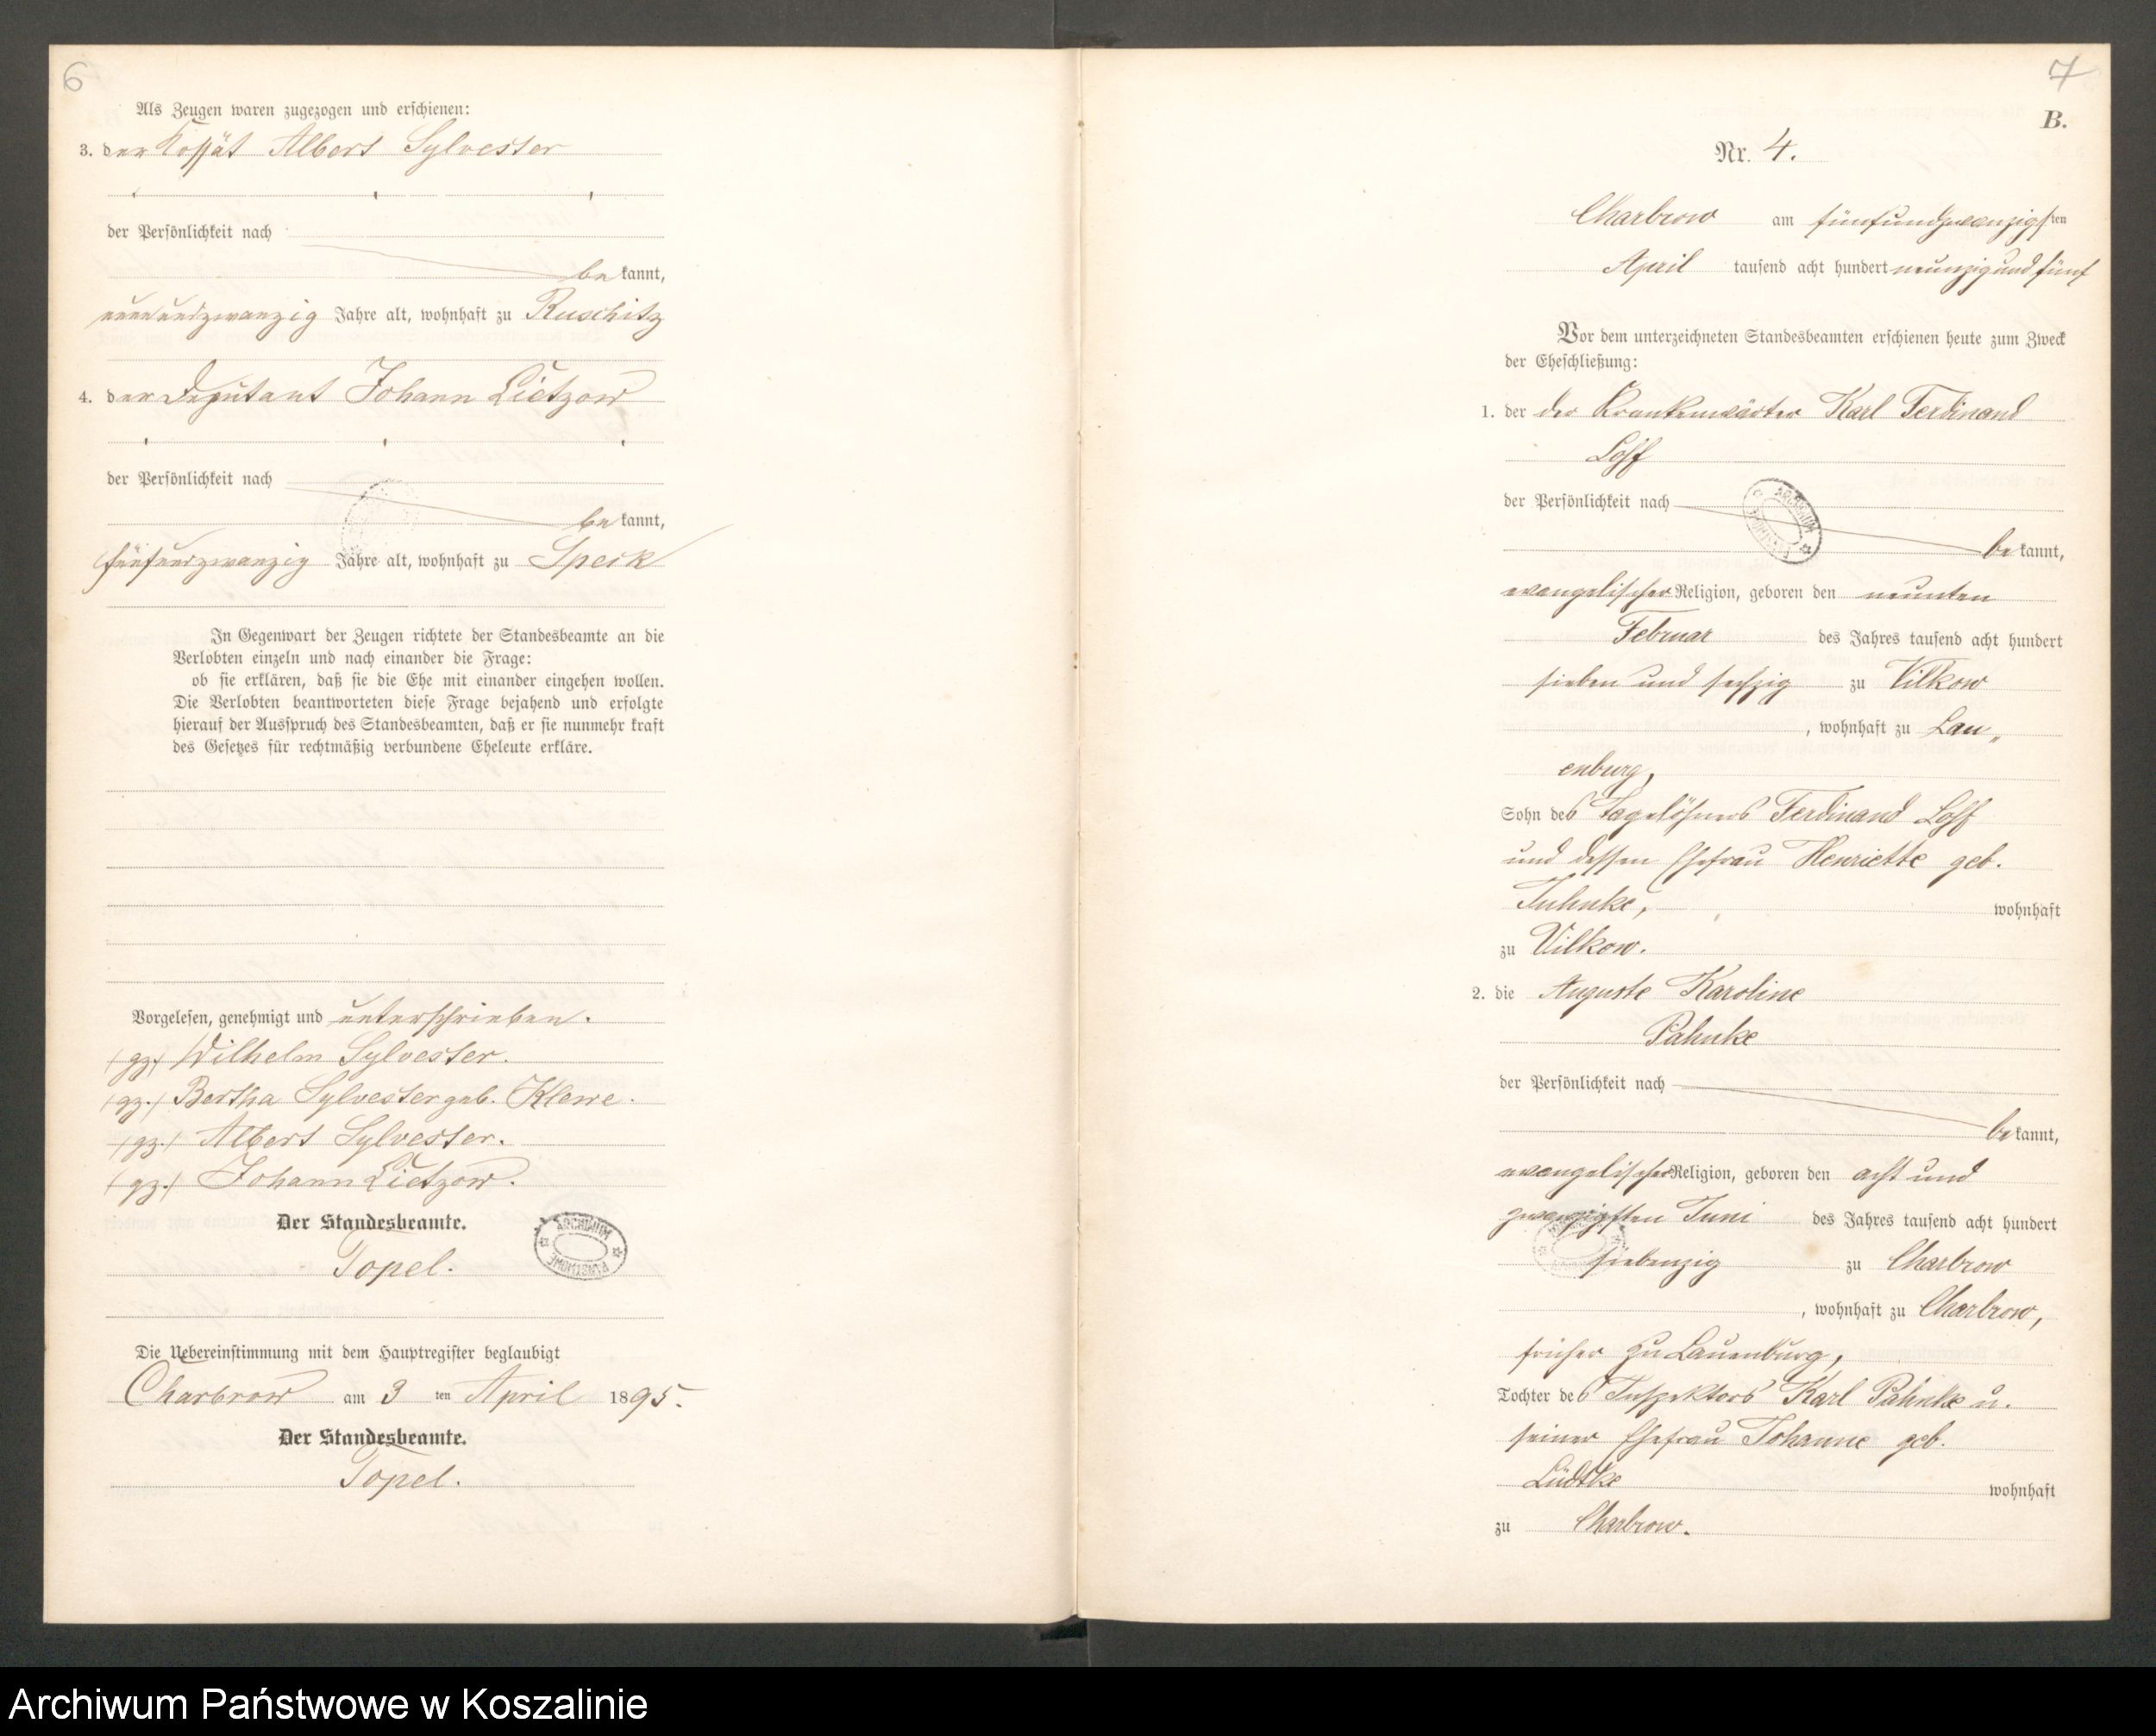 6
Als Zeugen waren zugezogen und erschienen:
3. der Kossät Albert Sylvester
der Persönlichkeit nach
be kannt,
neunundzwanzig Jahre alt, wohnhaft zu Ruschitz
4. der Deputant Johann Lietzow
der Persönlichkeit nach
be kannt,
fünfundzwanzig Jahre alt, wohnhaft zu Speck
In Gegenwart der Zeugen richtete der Standesbeamte an die
Verlobten einzeln und nach einander die Frage:
ob sie erklären, daß sie die Ehe mit einander eingehen wollen.
Die Verlobten beantworteten diese Frage bejahend und erfolgte
hierauf der Ausspruch des Standesbeamten, daß er sie nunmehr kraft
des Gesetzes für rechtmäßig verbundene Eheleute erkläre.
Vorgelesen, genehmigt und unterschrieben.
(gz.) Wilhelm Sylvester.
(gz.) Bertha Sylvester geb. Klewe.
(gz.) Albert Sylvester.
(gz.) Johann Lietzow.
Der Standesbeamte.
Topel.
ARCHIWUM PAŃSTWOWE
Die Uebereinstimmung mit dem Hauptregister beglaubigt
Charbrow am 3 ten April 1895.
Der Standesbeamte.
Topel.
7
B.
Nr. 4.
Charbrow am fünfundzwanzigsten
April tausend acht hundert neunzig und fünf
Vor dem unterzeichneten Standesbeamten erschienen heute zum Zweck
der Eheschließung:
1. der der Krankenwärter Karl Ferdinand
Loff
der Persönlichkeit nach
ARCHIWUM PAŃSTWOWE
be kannt,
evangelischer Religion, geboren den neunten
Februar des Jahres tausend acht hundert
sieben und sechzig zu Vilkow
, wohnhaft zu Lau„
enburg,
Sohn des Tagelöhners Ferdinand Loff
und dessen Ehefrau Henriette geb.
Juhnke, wohnhaft
zu Vilkow.
2. die Auguste Karoline
Pahnke
der Persönlichkeit nach
be kannt,
evangelischer Religion, geboren den acht und
zwanzigsten Juni des Jahres tausend acht hundert
siebenzig zu Charbrow
, wohnhaft zu Charbrow,
früher zu Lauenburg,
Tochter des Inspektors Karl Pahnke u.
seiner Ehefrau Johanne geb.
Lüdtke wohnhaft
zu Charbrow.
Archiwum Państwowe w Koszalinie